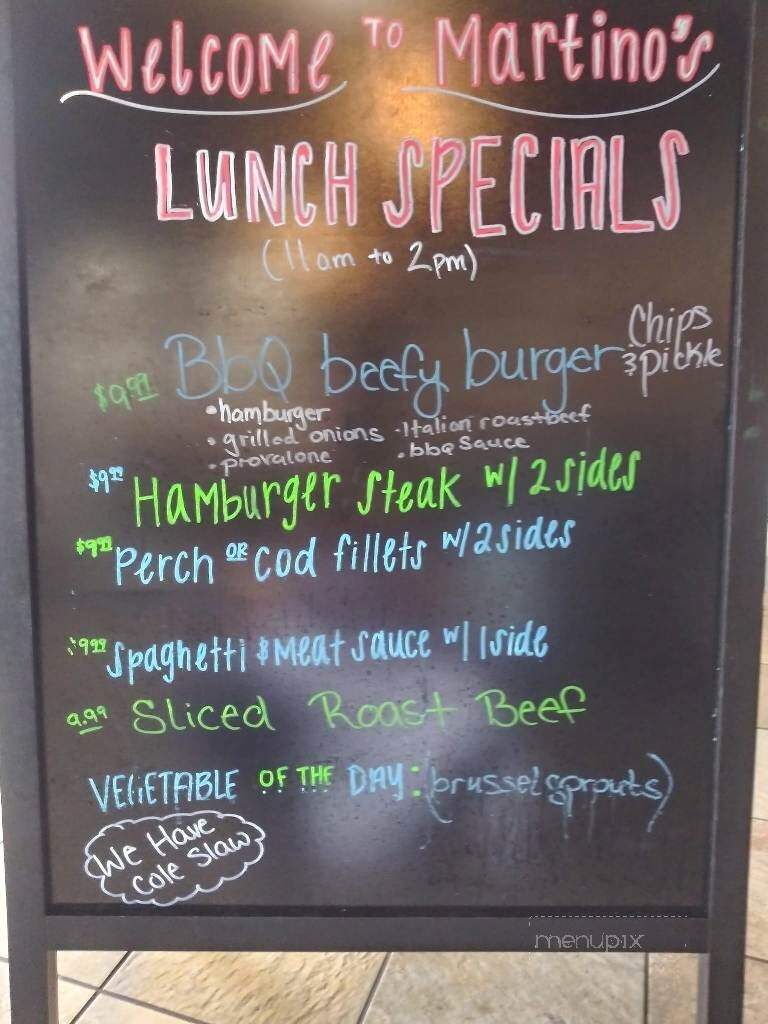 Welcome TO Martino's
LUNCH SPECIALS
(11am to 2pm)
$9.99 BbQ beefy burger Chips & pickle
• hamburger
• grilled onions • Italian roast beef
• provalone • bbq Sauce
$9.99 Hamburger Steak w/ 2 sides
$9.99 Perch OR Cod fillets w/ 2 sides
$9.99 Spaghetti & Meat Sauce w/ 1 side
9.99 Sliced Roast Beef
VEGETABLE OF THE DAY: (brussel sprouts)
We Have
Cole Slaw
menupix